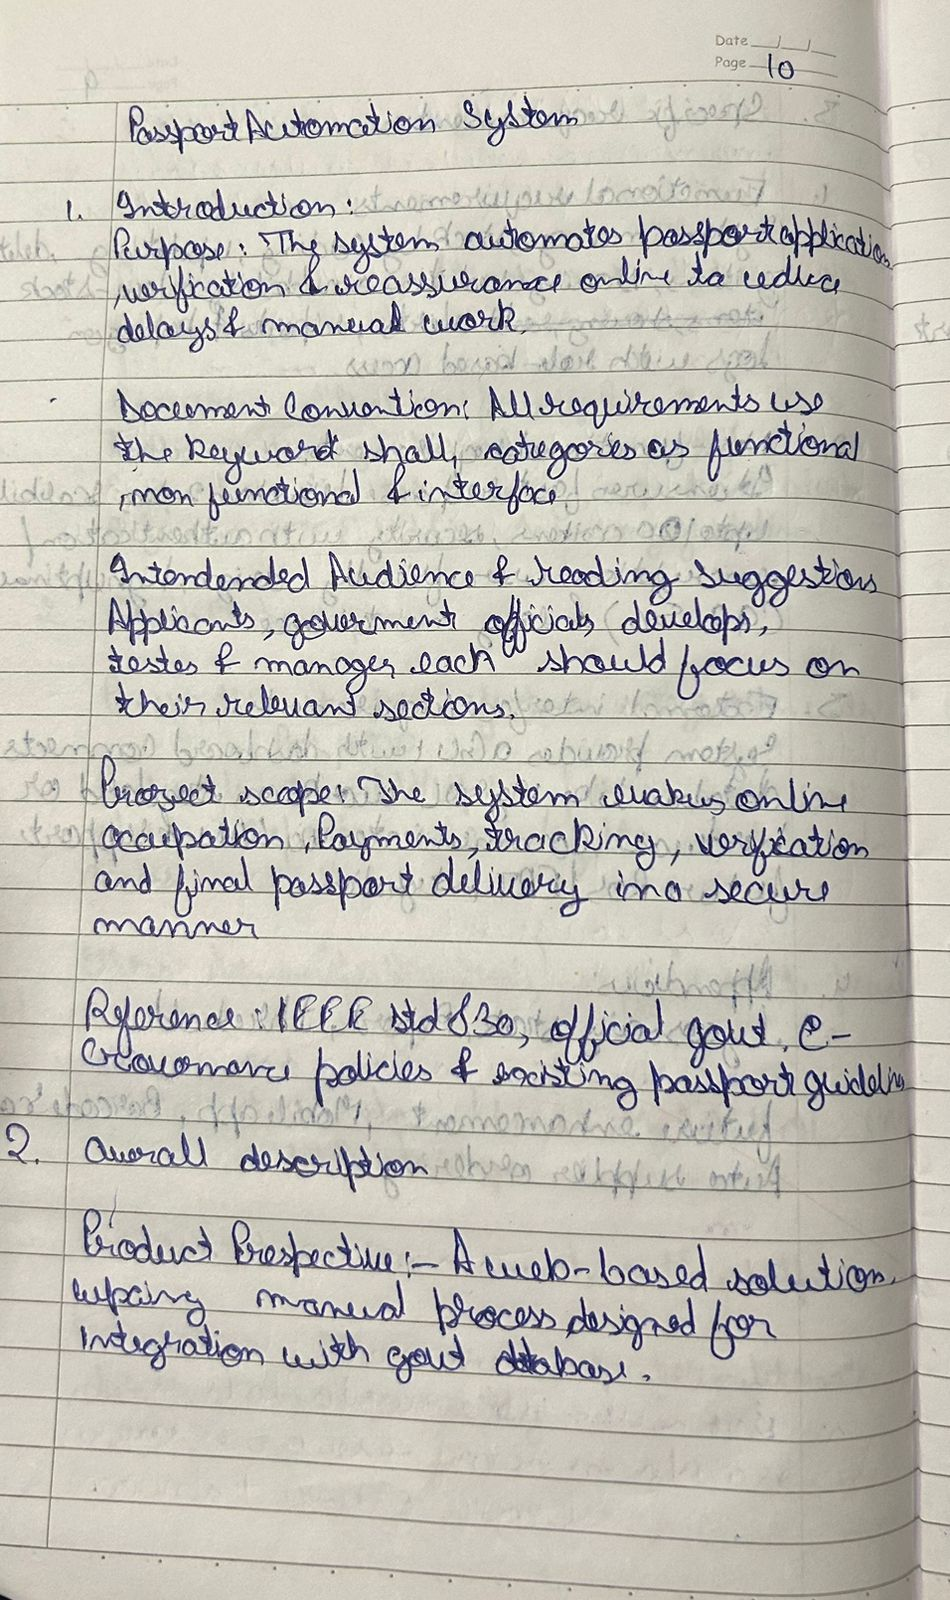 Date
Page 10
Passport Automation System
1. Introduction:
Purpose: The system automates passport application
, verfication & reassurance online to reduce
delays & manual work.
Document Convention: All requirements use
the keyword shall, categories as functional
, non functional & interface
Intendended Audience & reading suggestions
Applicants, goverment officials develops,
testes & manages each should focus on
their relevant sections.
Project scope: The system makes online
occupation, Payments, tracking, verfication
and final passport delivery in a secure
manner
Reference: IEEE std 830, official govt. e-
policies & existing passport guidelines
2. Overall description
Product Prespective:- A web-based solution
manual process designed for
integration with govt database.